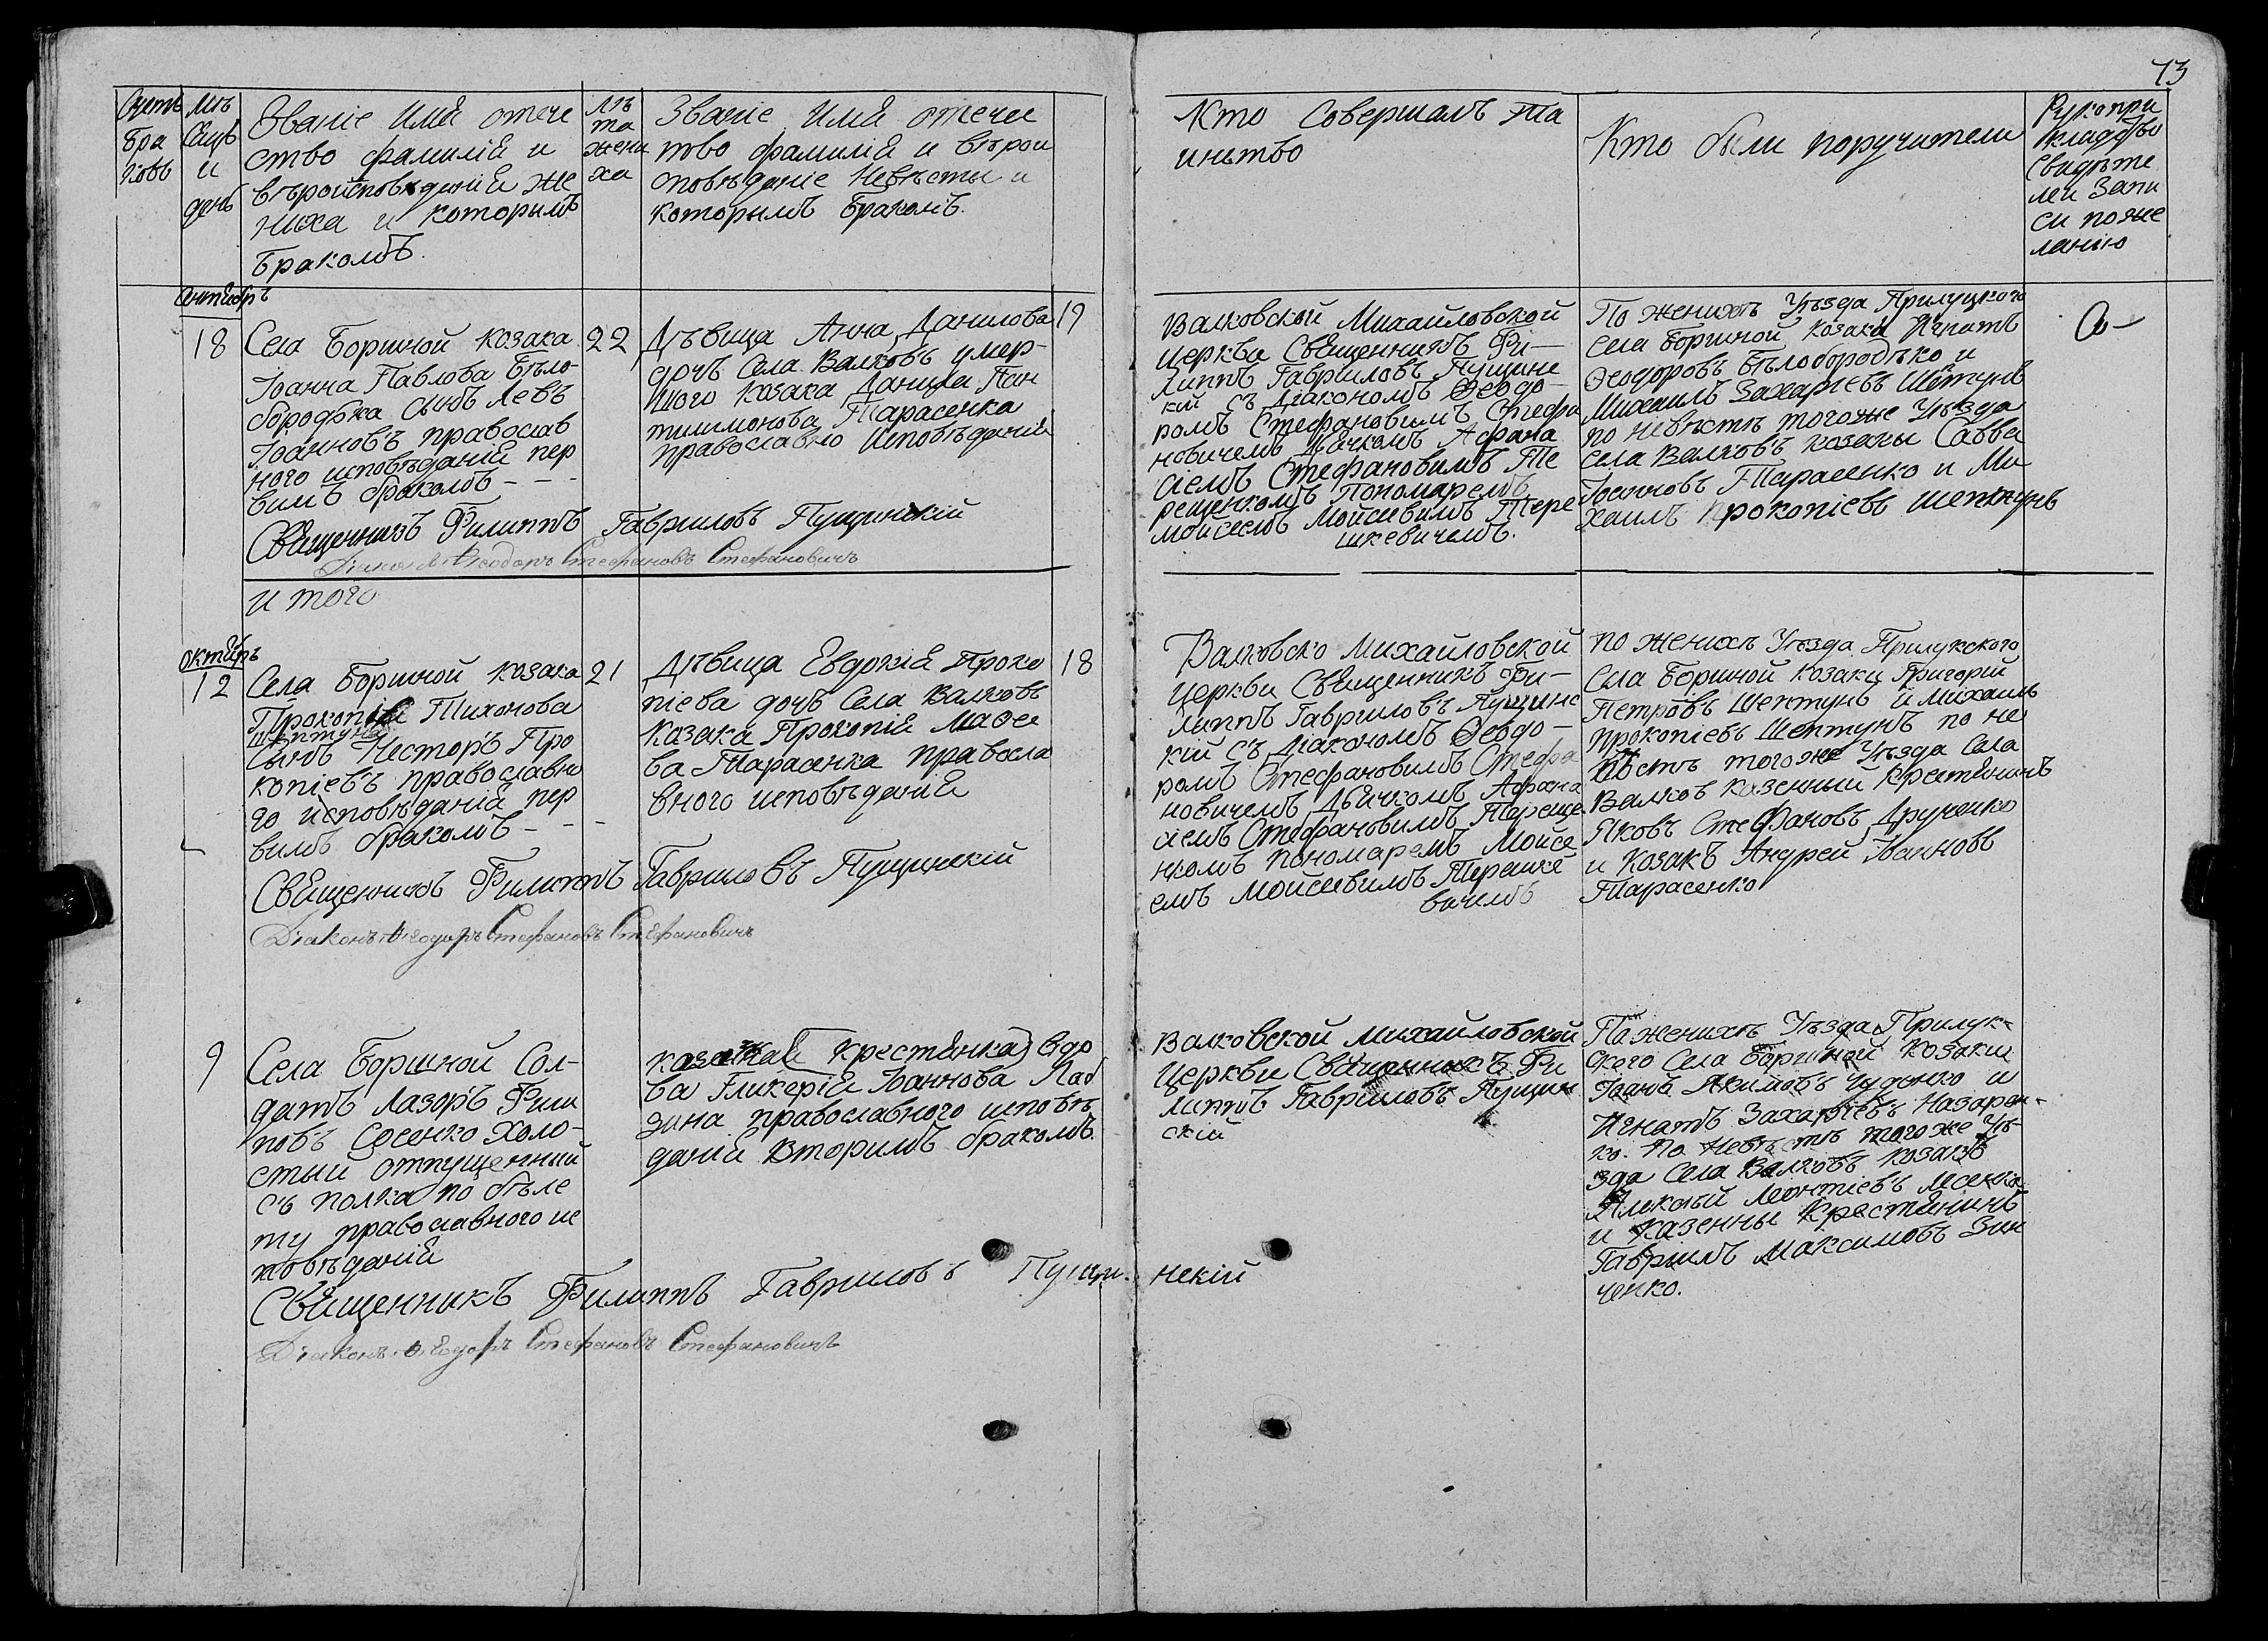 73
Счетъ
бра
ковъ
Мѣ
сяцъ
и
день
Званіе Имя отече
ство фамилія и
вѣроисповѣданія же
ниха и которымъ
бракомъ.
лѣ
та
жени
ха
Званіе Имя отечес
тово фамилія и вѣрои
сповѣданіе Невѣсты и
которымъ бракомъ.
Кто Совершалъ Та
инство
Кто были поручители
Рукопри
кладство
Свидѣте
лей Запи
си по же
ланію
18
Села Боршной козака
Іоанна Павлова Бѣло-
бородька сынъ Левъ
Іоанновъ православ
ного исповѣданія пер
вимъ бракомъ - - -
22
Дѣвица Анна Данилова
дочь Села Валковъ умер-
шого козака Даніила Пан
тилимонова Тарасенка
православно Исповѣданія
19
Валковской Михайловской
церкви Священникъ Фи-
липпъ Гавриловъ Пущинс
кій съ Діакономъ Ѳеодо-
ромъ Стефановимъ Стефа
новичемъ Дячкомъ Афана
сіемъ Стефановимъ Те
рещенкомъ Пономаремъ
Мойсеемъ Мойсеевимъ Тере
шкевичемъ.
По женихѣ Уѣзда Прилуцкого
села Боршной козаки Игнатъ
Ѳеодоровъ Бѣлобородько и
Михаилъ Захаріевъ Шептунъ
по невѣстѣ тогоже Уѣзда
села Валковъ козаки Савва
Іоанновъ Тарасенко и Ми
хаилъ Прокопіевъ Шептунъ
Священникъ Филиппъ Гавриловъ Пущинскій
Діаконъ Ѳеодоръ Стефановъ Стефановичъ
И того
октябръ
12
Села Боршной козака
Прокопія Тихонова
Шептуна
Сынъ Несторъ Про
копіевъ православно
го исповѣданія пер
вимъ бракомъ - - -
21
Дѣвица Евдокія Проко
піева дочь Села Валковъ
козака Прокопія Маѳее
ва Тарасенка правосла
вного исповѣданія
18
Валковско Михайловской
церкви Священникъ Фи-
липпъ Гавриловъ Пущинс
кій съ Діакономъ Ѳеодо-
ромъ Стефановимъ Стефа
новичемъ Дьячкомъ Афана
сіемъ Стефановимъ Тереще
нкомъ Пономаремъ Мойсе
емъ Мойсеевимъ Терешке
вичемъ
по женихѣ Уѣзда Прилукского
Села Боршной козаки Григорій
Петровъ Шептунъ и Михаилъ
Прокопіевъ Шептунъ по не
вѣстѣ тогоже Уѣзда Села
Валковъ казенный крестянинъ
Яковъ Стефановъ Друченко
и Козакъ Андрей Іванновъ
Тарасенко
Священникъ Филиппъ Гавриловъ Пущинскій
Діаконъ Ѳеодоръ Стефановъ Стефановичъ
9
Села Боршной Сол-
датъ Лазоръ Фили
повъ Сосенко Холо-
стый отпущенний
съ полка по биле
ту православного ис
повѣданія
казенная крестянка вдо
ва Гликерія Іоаннова Лаб
зина православного исповѣ
данія вторимъ бракомъ.
Валковской Михайловской
Церкви Священникъ Фи
липпъ Гавриловъ Пущин
скій
По женихѣ Уѣзда Прилук-
ского Села Боршной козаки
Іоанъ Акимовъ Чуденко и
Игнатъ Захаріевъ Назарен-
ко. По Невѣстѣ того же Уѣ-
зда Села Валковъ козакъ
Алексѣй Леонтіевъ
и Казенны Крестянинъ
Гавріилъ Максимовъ Зин
ченко.
Священникъ Филиппъ Гавриловъ Пущинскій
Діаконъ Ѳеодоръ Стефановъ Стефановичъ